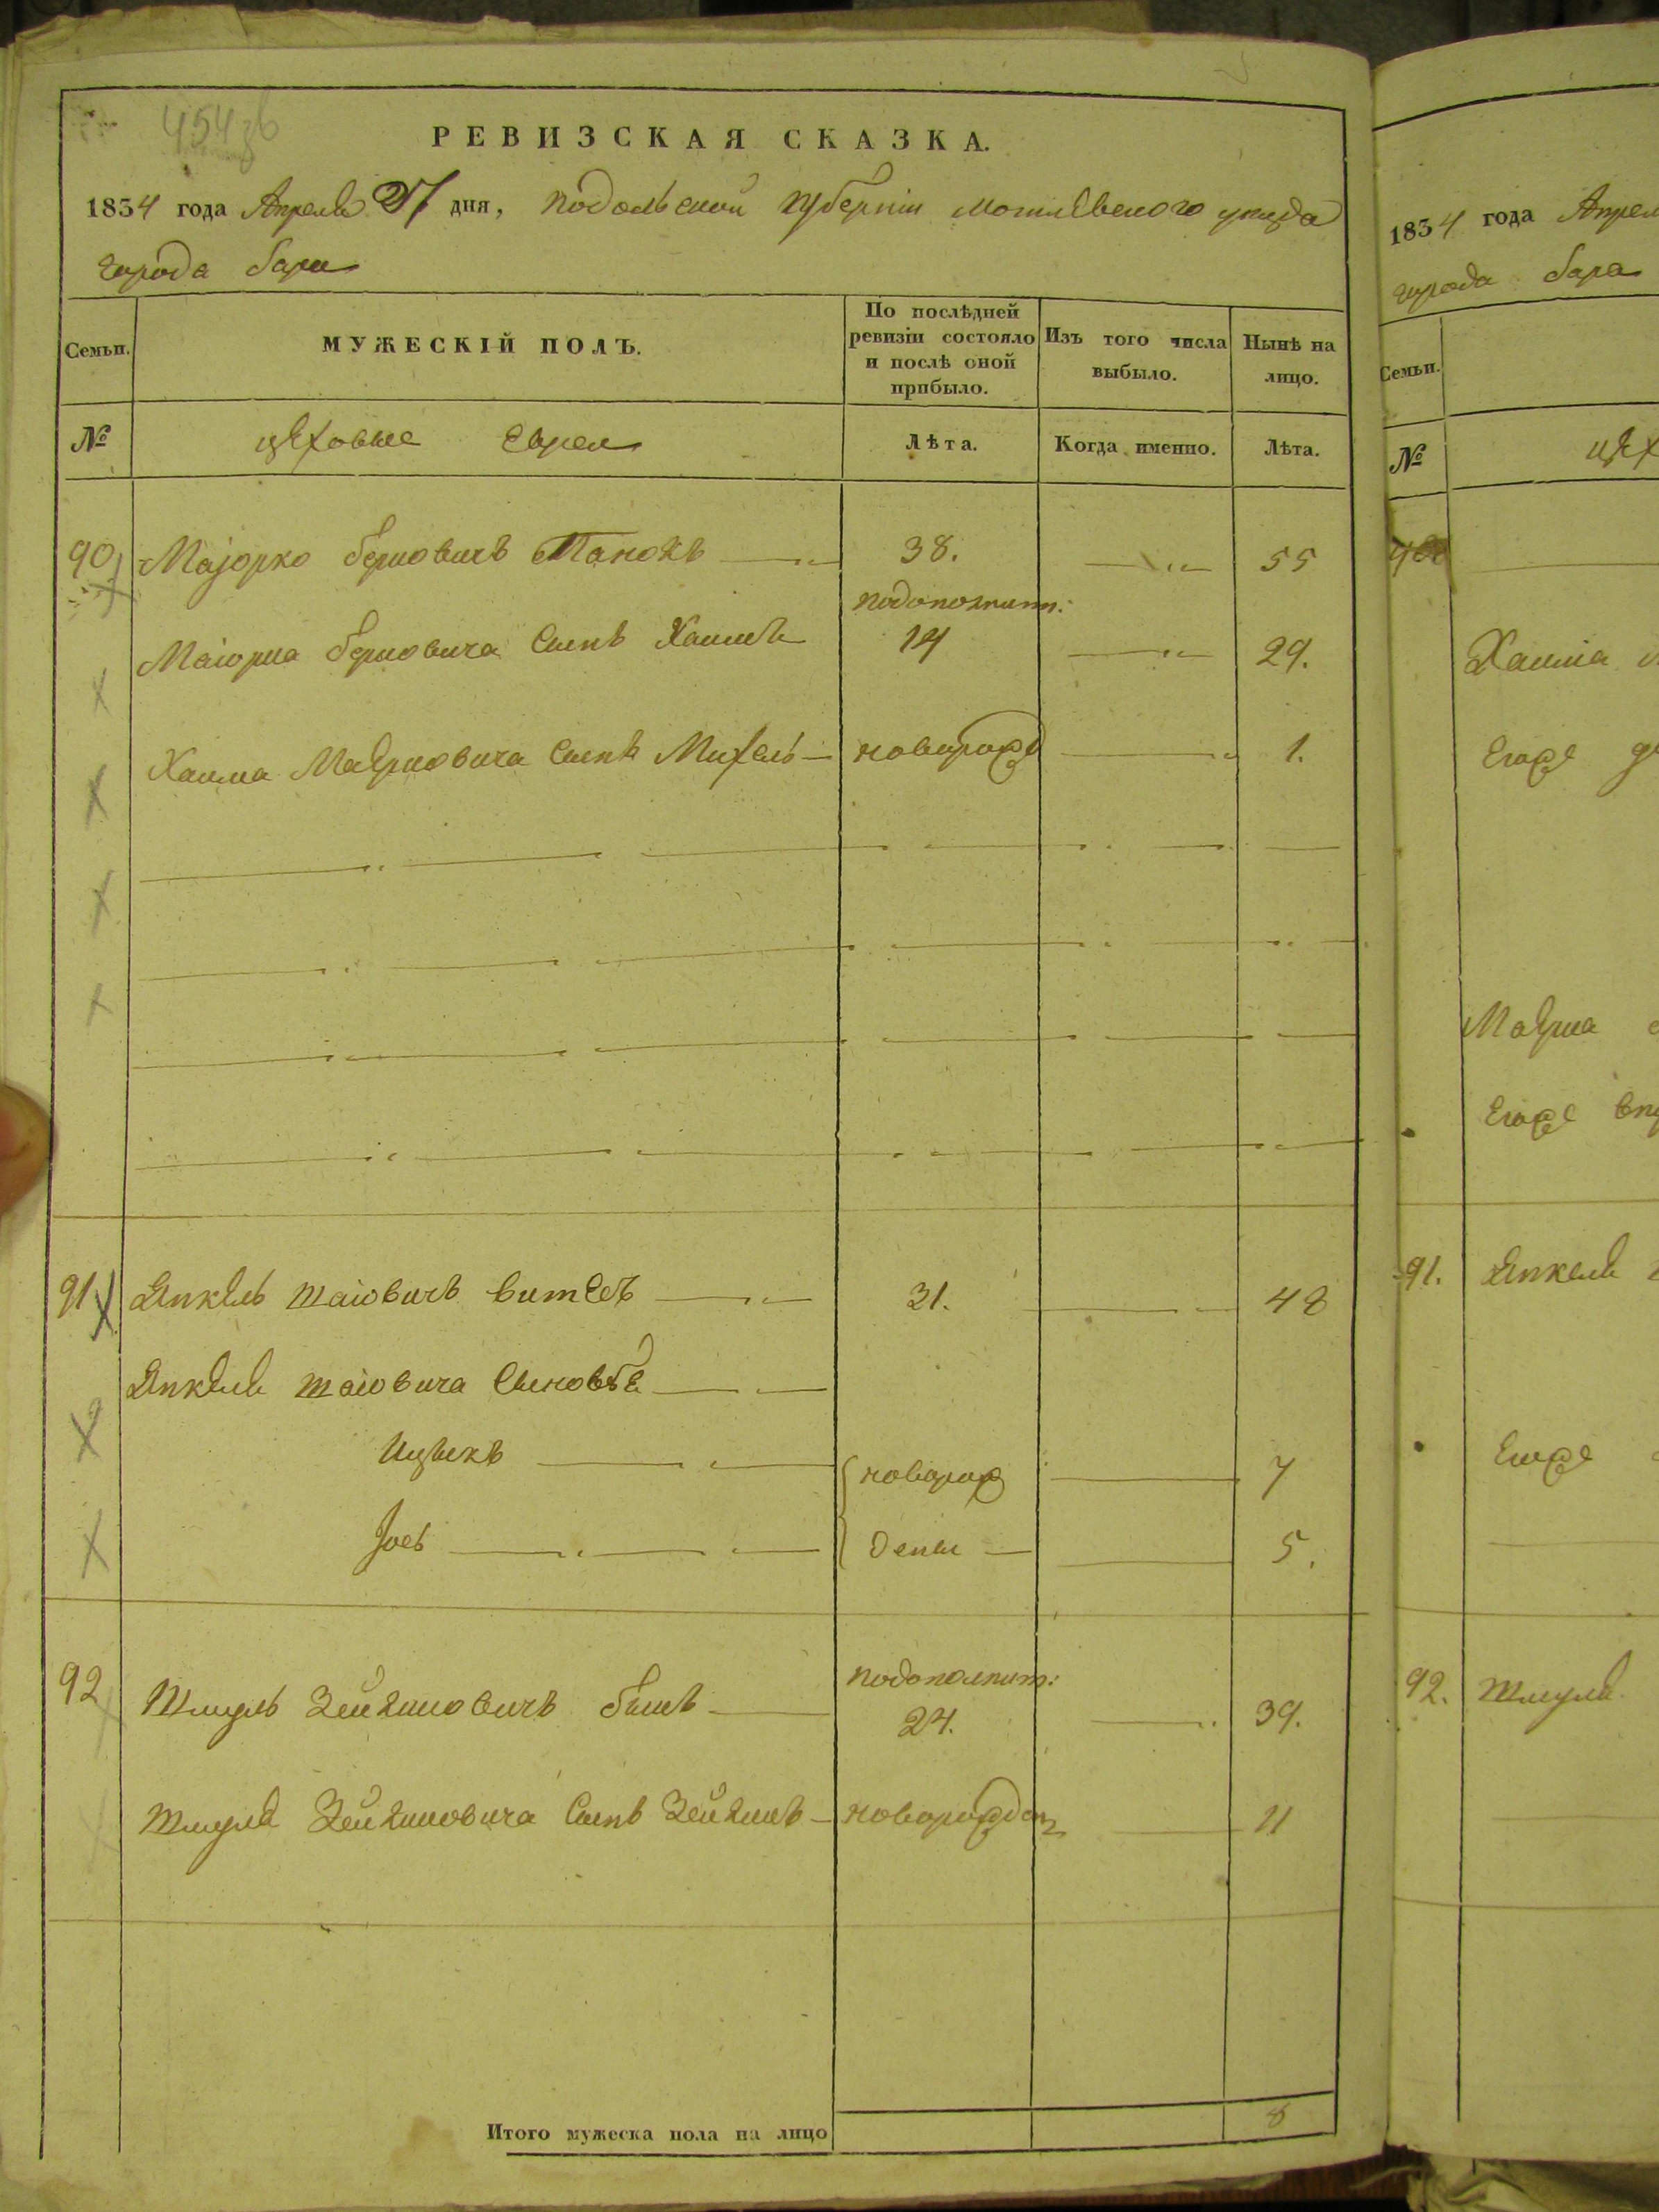 454
РЕВИЗСКАЯ СКАЗКА.
1834 года Апреля 27 дня, Подольской Губерніи Могилевского уезда
города бара
Семьи.
МУЖЕСКІЙ ПОЛЪ.
По послѣдней ревизіи состояло и послѣ оной прибыло.
Изъ того числа выбыло.
Нынѣ на лицо.
№ цеховые Евреи Лѣта. Когда именно. Лѣта.
90 Маjорко берковичъ 38. 55
подополнит:
Маіорка берковича Сынъ Хаимъ 14 29.
Хаима Маерковича Сынъ Михель новорожд 1.
91 Янкель шаіовичъ 31. 48
Янкеля шаіовича Сыновья
Ицыкъ новорож 7
Jось дены 5.
92 подополнит:
Шмуль Зейликовичъ 24. 39.
Шмуля Зейликовича Сынъ новорожден 11
Итого мужеска пола на лицо 8
1834 года Апрел
города бара
Семьи.
№ цех
Хаима
Егоже
Маерка
Егоже
91. Янкеля
Егоже
92. Шмуля